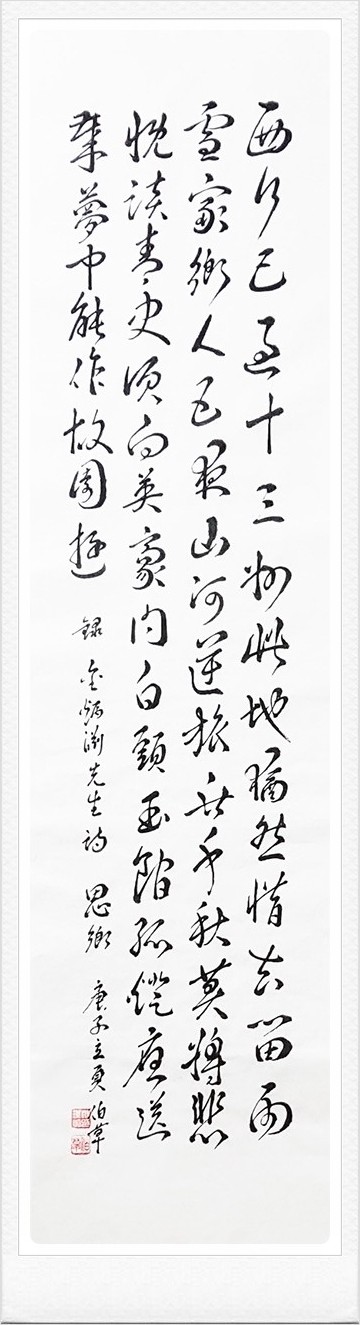 西行已過十三州此地猶然惜去留雨
雪家鄉人五夜山河逆旅世千秋莫將悲
慨談青史須向英豪問白頭玉館孤燈應送
歲夢中能作故園遊 錄金炳淵先生詩 思鄉 庚子立夏 伯草